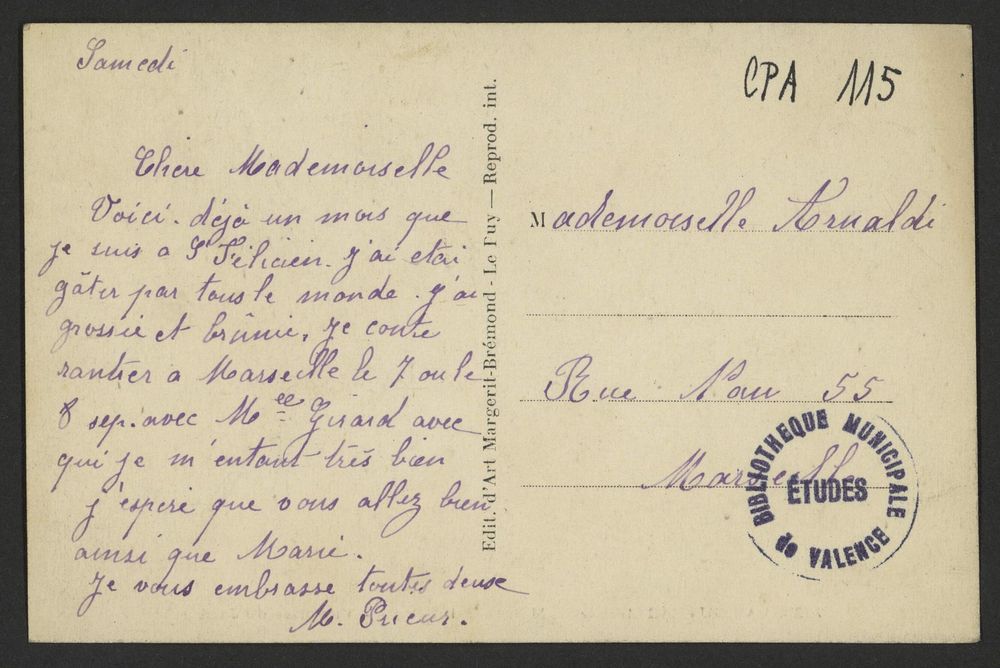 Samedi
Chere Mademoiselle
Voici déjà un mois que
je suis a St Félicien. J'ai etai
gâter par tous le monde. J'ai
grossie et brûnie, Je conte
rantrer a Marseille le 7 ou le
8 sep. avec Mee Girard avec
qui je m'entant très bien
j'espere que vous allez bien
ainsi que Marie.
Je vous embrasse toutes deuse
M. Prieur.
Edit. d'Art Margerit-Brémond - Le Puy — Reprod. int.
CPA 115
Mademoiselle Arnaldi
Rue Nau 55
Marseille
BIBLIOTHEQUE MUNICIPALE
ÉTUDES
de VALENCE